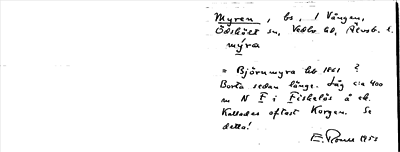 Myren, bs, i Vången,
Ödskölt sn, Vedbo hd, Älvsb. l.
mýra
= Björnmyra hb 1861 ?
Borta sedan länge. Låg c:a 400
m N F i Fiskelös å ek.
Kallades oftast Korgen. Se
detta!
E. 1953